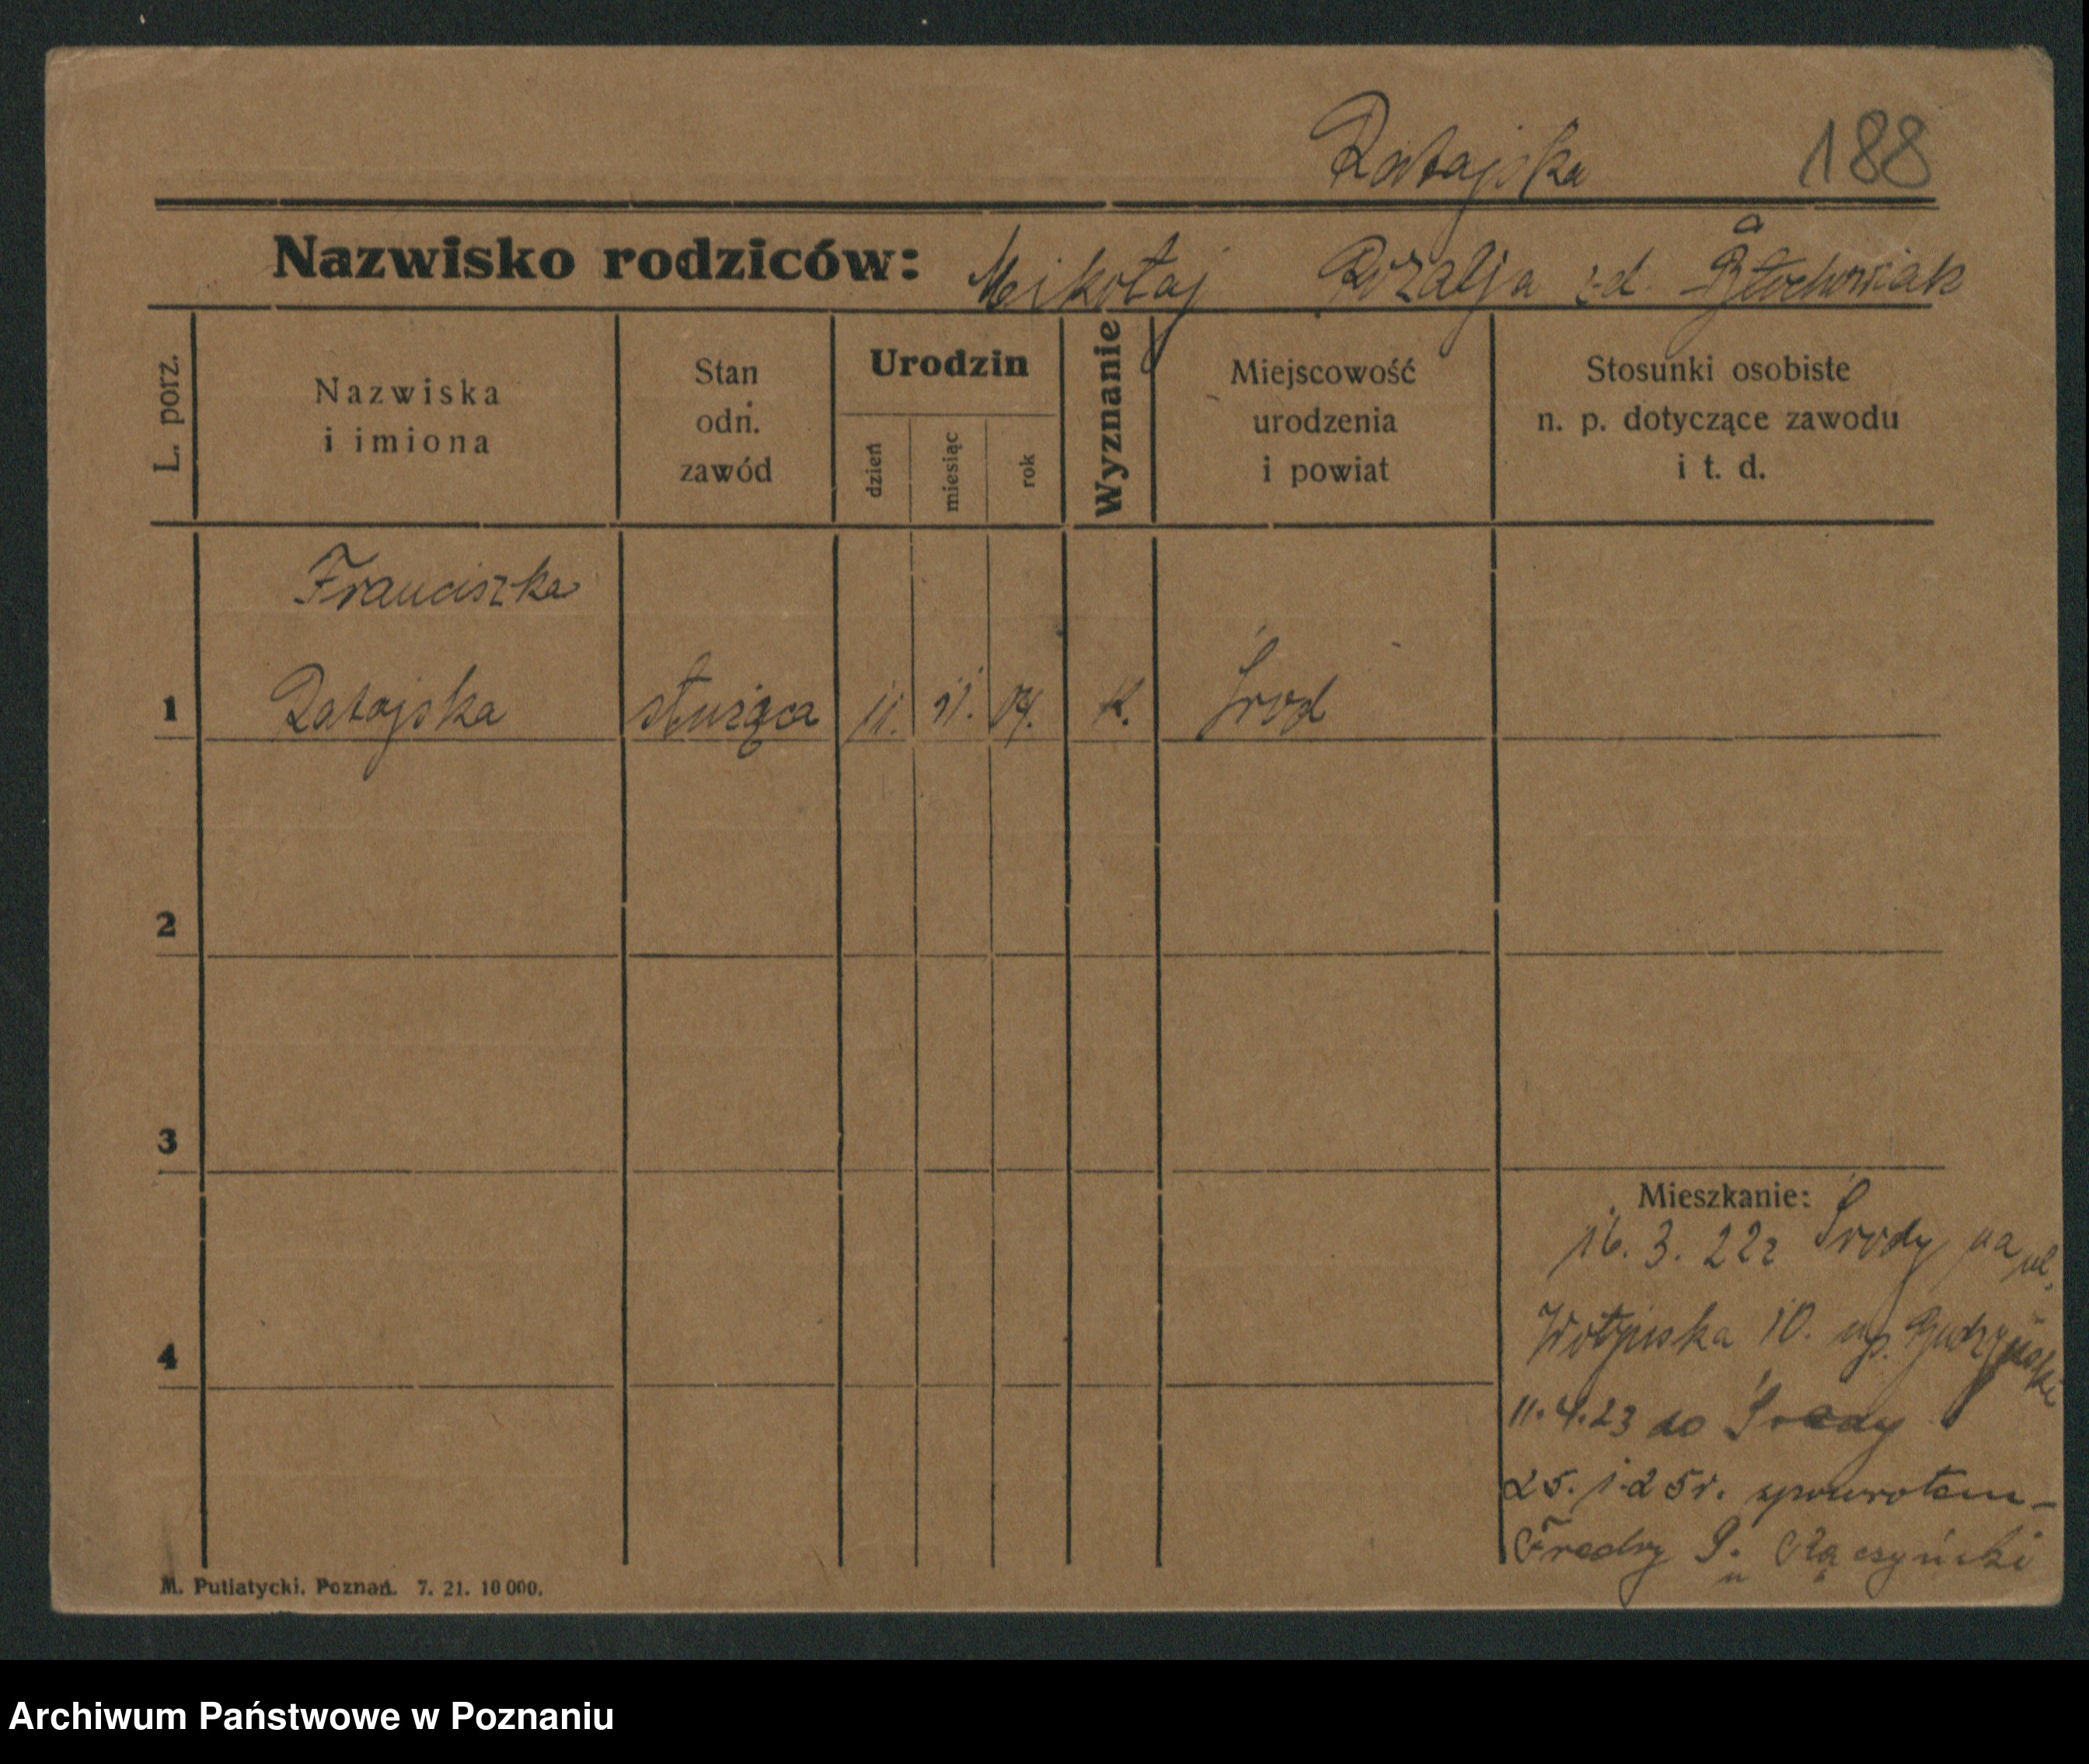 Ratajska 188
Nazwisko rodziców: Mikołaj Rozalja z d. Błochowiak
a
L. porz.
Nazwiska
i imiona
Stan
odn.
zawód
Urodzin
dzień
miesiąc
rok
Wyznanie
Miejscowość
urodzenia
i powiat
Stosunki osobiste
n. p. dotyczące zawodu
i t. d.
Franciszka
1 Ratajska służąca 11. 11. 04. K. Środ
2
3
Mieszkanie:
16. 3. 22 z Środy na ul.
10. u p.
4
11.4.23 do Środy
25. 1. 25 r. zpowrotem -
Fredry 9. u
M. Putiatycki, Poznań. 7. 21. 10 000.
Archiwum Państwowe w Poznaniu